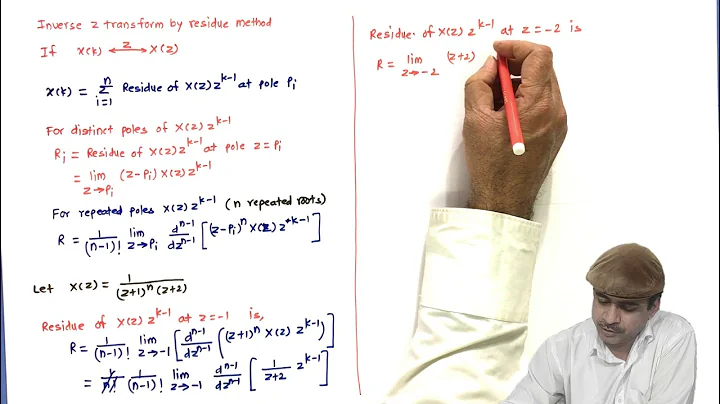 Inverse z transform by residue method
If x(k) ⟷ X(z)
z
x(k) = n Σ i=1 Residue of X(z) z^k-1 at pole Pi
For distinct poles of X(z) z^k-1
Ri = Residue of X(z) z^k-1 at pole z = Pi
= lim z→Pi (z-Pi) X(z) z^k-1
For repeated poles X(z) z^k-1 (n repeated roots)
R = 1/(n-1)! lim z→Pi d^n-1/dz^n-1 [(z-Pi)^n X(z) z^k-1]
Let X(z) = 1/(z+1)^n (z+2)
Residue of X(z) z^k-1 at z = -1 is,
R = 1/(n-1)! lim z→-1 [d^n-1/dz^n-1 ((z+1)^n X(z) z^k-1)]
= 1/(n-1)! lim z→-1 d^n-1/dz^n-1 [1/z+2 z^k-1]
Residue of X(z) z^k-1 at z = -2 is
R = lim z→-2 (z+2)